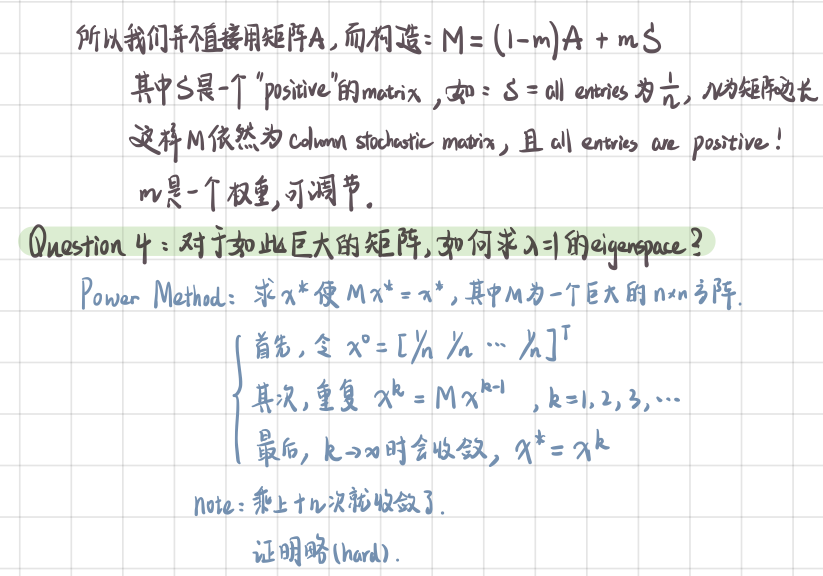 所以我们并不直接用矩阵A，而构造：M = (1-m)A + mS
其中S是一个“positive”的matrix，如：S = all entries 为 1/n，n为矩阵边长
这样M依然为column stochastic matrix，且 all entries are positive！
m是一个权重，可调节．
Question 4：对于如此巨大的矩阵，如何求λ=1的eigenspace？
Power Method：求x* 使 Mx* = x*，其中M为一个巨大的n×n方阵．
首先，令 x⁰ = [1/n 1/n ⋯ 1/n]ᵀ
其次，重复 xᵏ = Mxᵏ⁻¹ ，k=1, 2, 3, ⋯
最后，k→∞时会收敛，x* = xᵏ
note：乘上十几次就收敛了．
证明略(hard)．